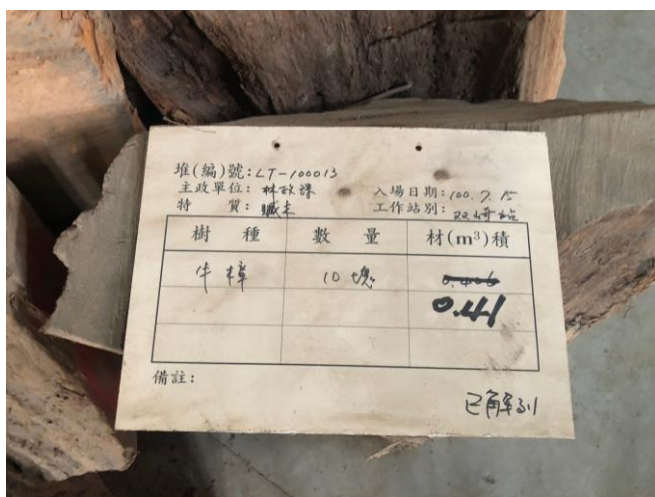 堆(編)號:LT-100013
主政單位:林政課 入場日期:100.7.15
特 質:贓木 工作站別:双崎站
樹 種 數 量 材(m³)積
牛樟 10塊 0.406
0.41
備註:
已解列